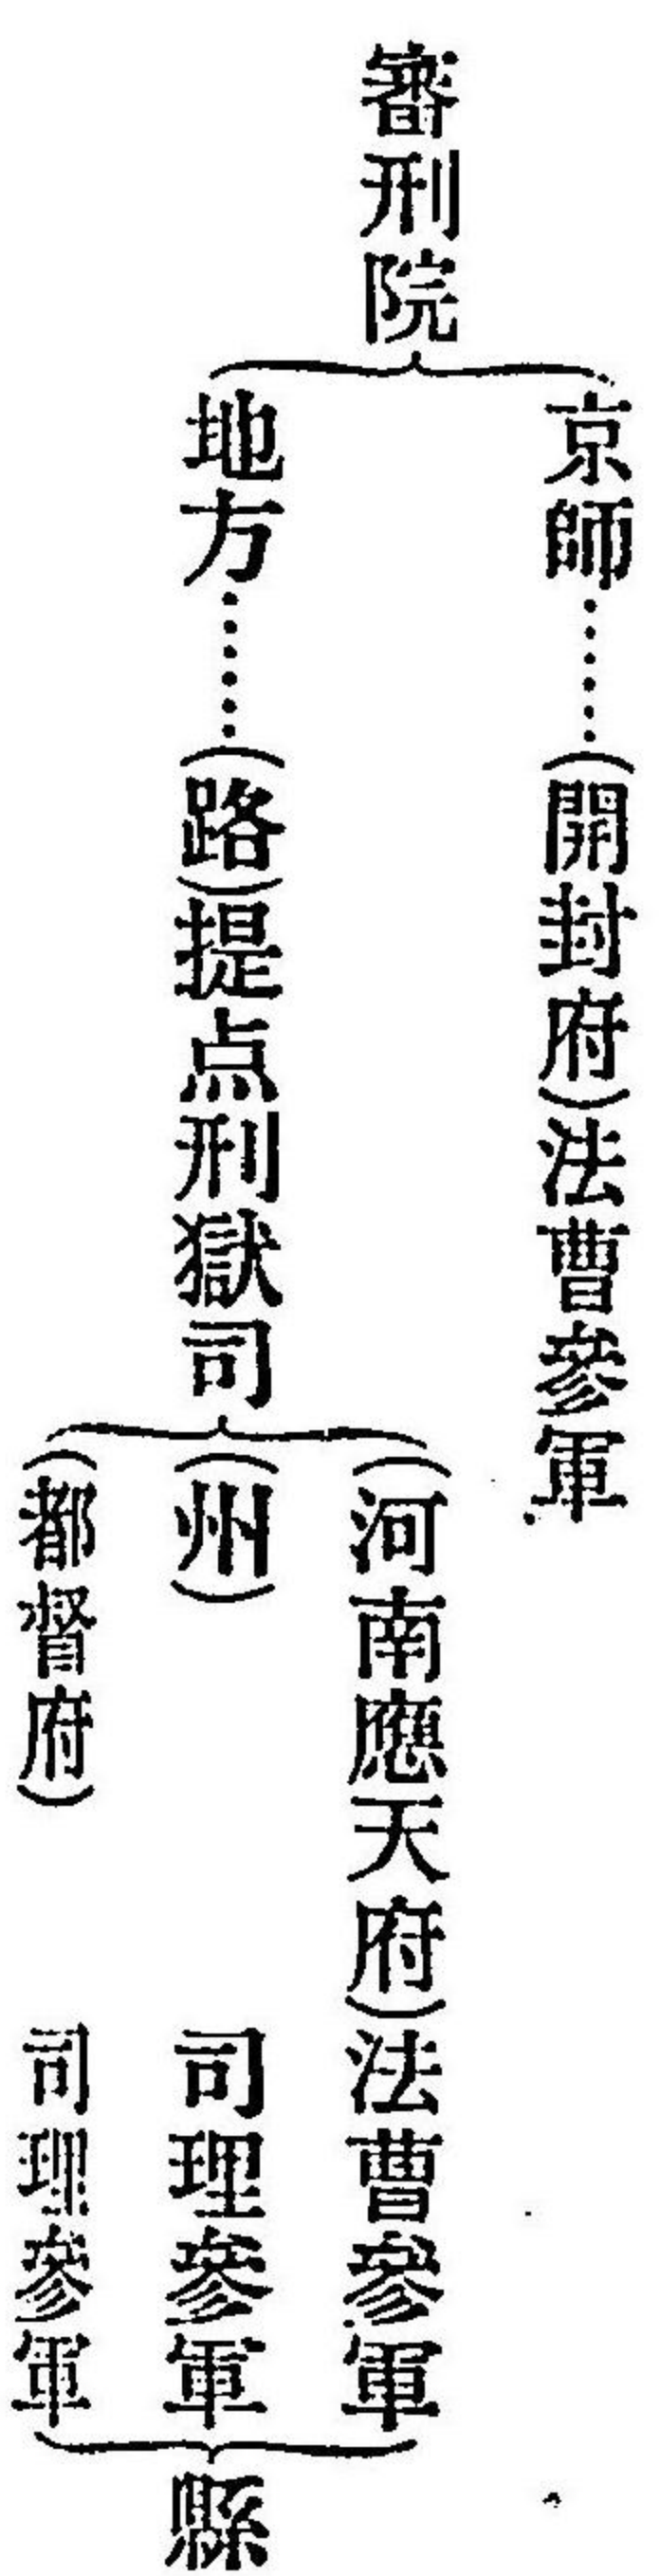 審刑院
京師……(開封府)法曹參軍
地方……(路)提点刑獄司
(河南應天府)法曹參軍
(州)司理參軍
(都督府)司理參軍
縣